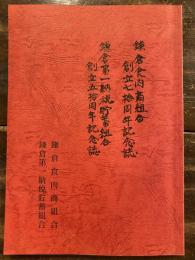 鎌倉食肉商組合
創立七拾周年記念誌
鎌倉第一納税貯蓄組合
創立五拾周年記念誌
鎌倉食肉商組合
鎌倉第一納税貯蓄組合